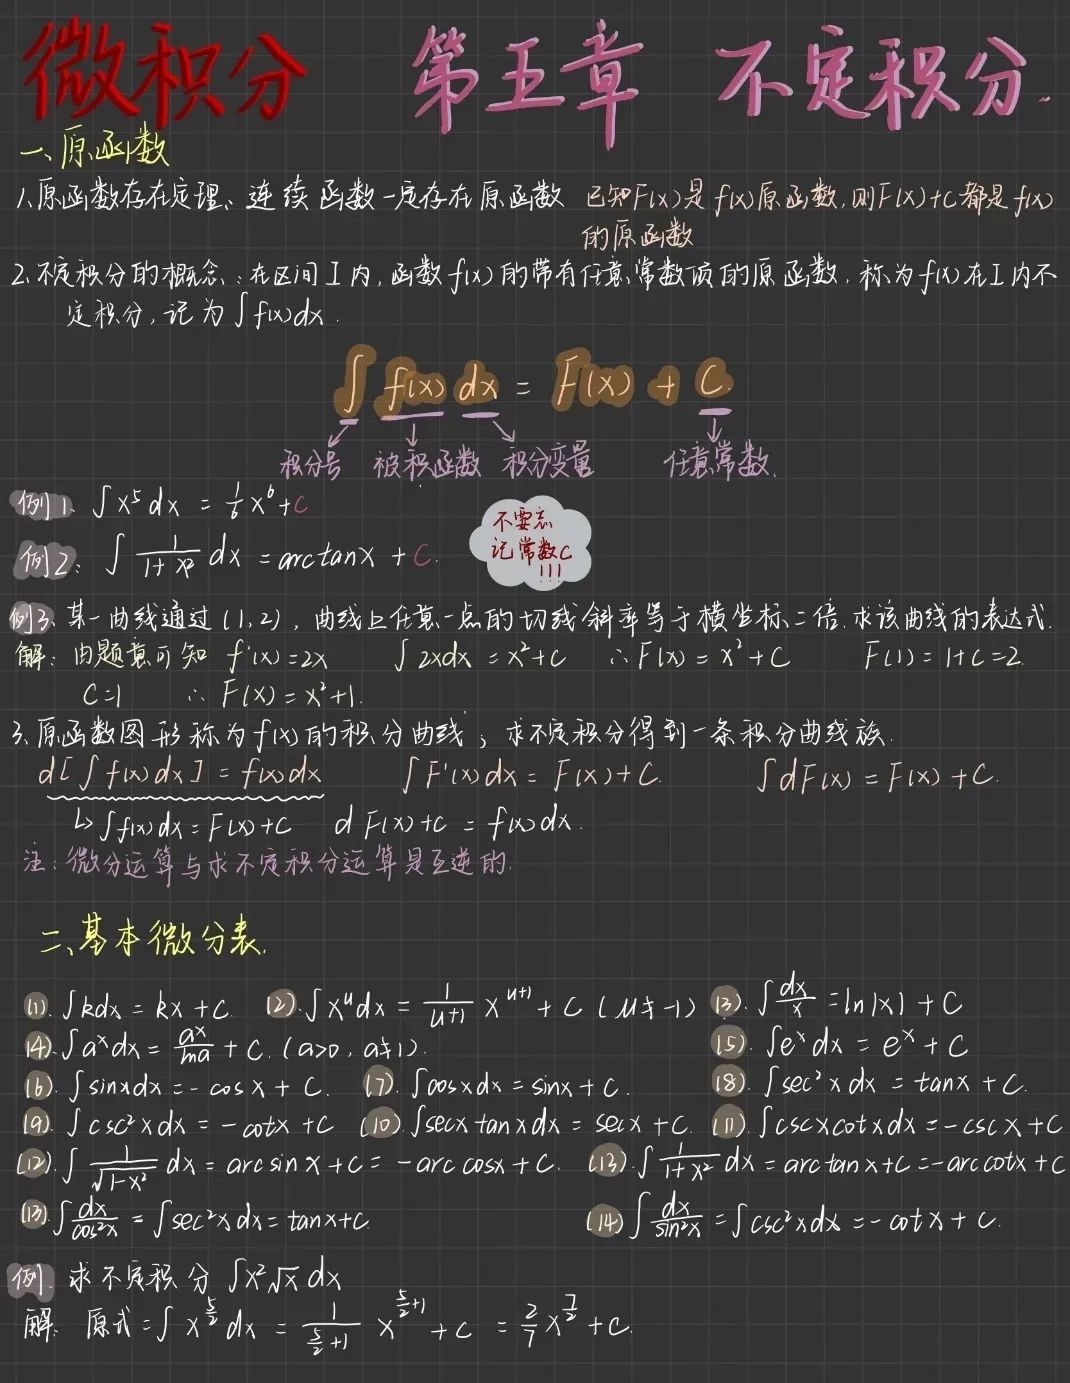 微积分 第五章 不定积分.
一、原函数
1、原函数存在定理、连续函数一定存在原函数 已知F(x)是f(x)原函数,则F(x)+C都是f(x)
的原函数
2、不定积分的概念、:在区间I内,函数f(x)的带有任意常数项的原函数,称为f(x)在I内不
定积分,记为∫f(x)dx.
∫ f(x) dx = F(x) + C.
积分号 被积函数 积分变量 任意常数.
例1、∫x⁵dx = 1/6 x⁶+C
不要忘
记常数C
!!!
例2: ∫ 1/(1+x²) dx = arctanx + C.
例3、某一曲线通过(1,2),曲线上任意一点的切线斜率等于横坐标二倍.求该曲线的表达式.
解:由题意可知 f'(x)=2x ∫2xdx = x²+C ∴F(x)= x²+C F(1)=1+C=2.
C=1 ∴F(x)=x²+1.
3、原函数图形称为f(x)的积分曲线;求不定积分得到一条积分曲线族.
d[∫f(x)dx] = f(x)dx ∫F'(x)dx = F(x)+C. ∫dF(x) = F(x)+C.
↳∫f(x)dx = F(x)+C d F(x)+c = f(x)dx.
注:微分运算与求不定积分运算是互逆的.
二、基本微分表.
(1).∫kdx = kx+C. (2).∫xᵘdx = 1/(u+1) xᵘ⁺¹ + C (u≠-1) (3).∫dx/x = ln|x| + C
(4).∫aˣdx = aˣ/ma + C.(a>0, a≠1). (5). ∫eˣdx = eˣ+C
(6). ∫sinxdx = -cosx + C. (7).∫cosxdx = sinx+C. (8). ∫sec²xdx = tanx + C.
(9). ∫csc²xdx = -cotx + C (10).∫secxtanxdx = secx + C. (11).∫cscxcotxdx = -cscx + C
(12).∫ 1/√(1-x²) dx = arcsinx + C = -arccosx + C. (13).∫ 1/(1+x²) dx = arctanx+C = -arccotx+C
(13).∫dx/cos²x = ∫sec²xdx = tanx+C. (14)∫dx/sin²x = ∫csc²xdx = -cotx + C.
例. 求不定积分 ∫x²√x dx
解: 原式=∫x^(5/2) dx = 1/(5/2+1) x^(5/2+1) + C = 2/7 x^(7/2) + C.